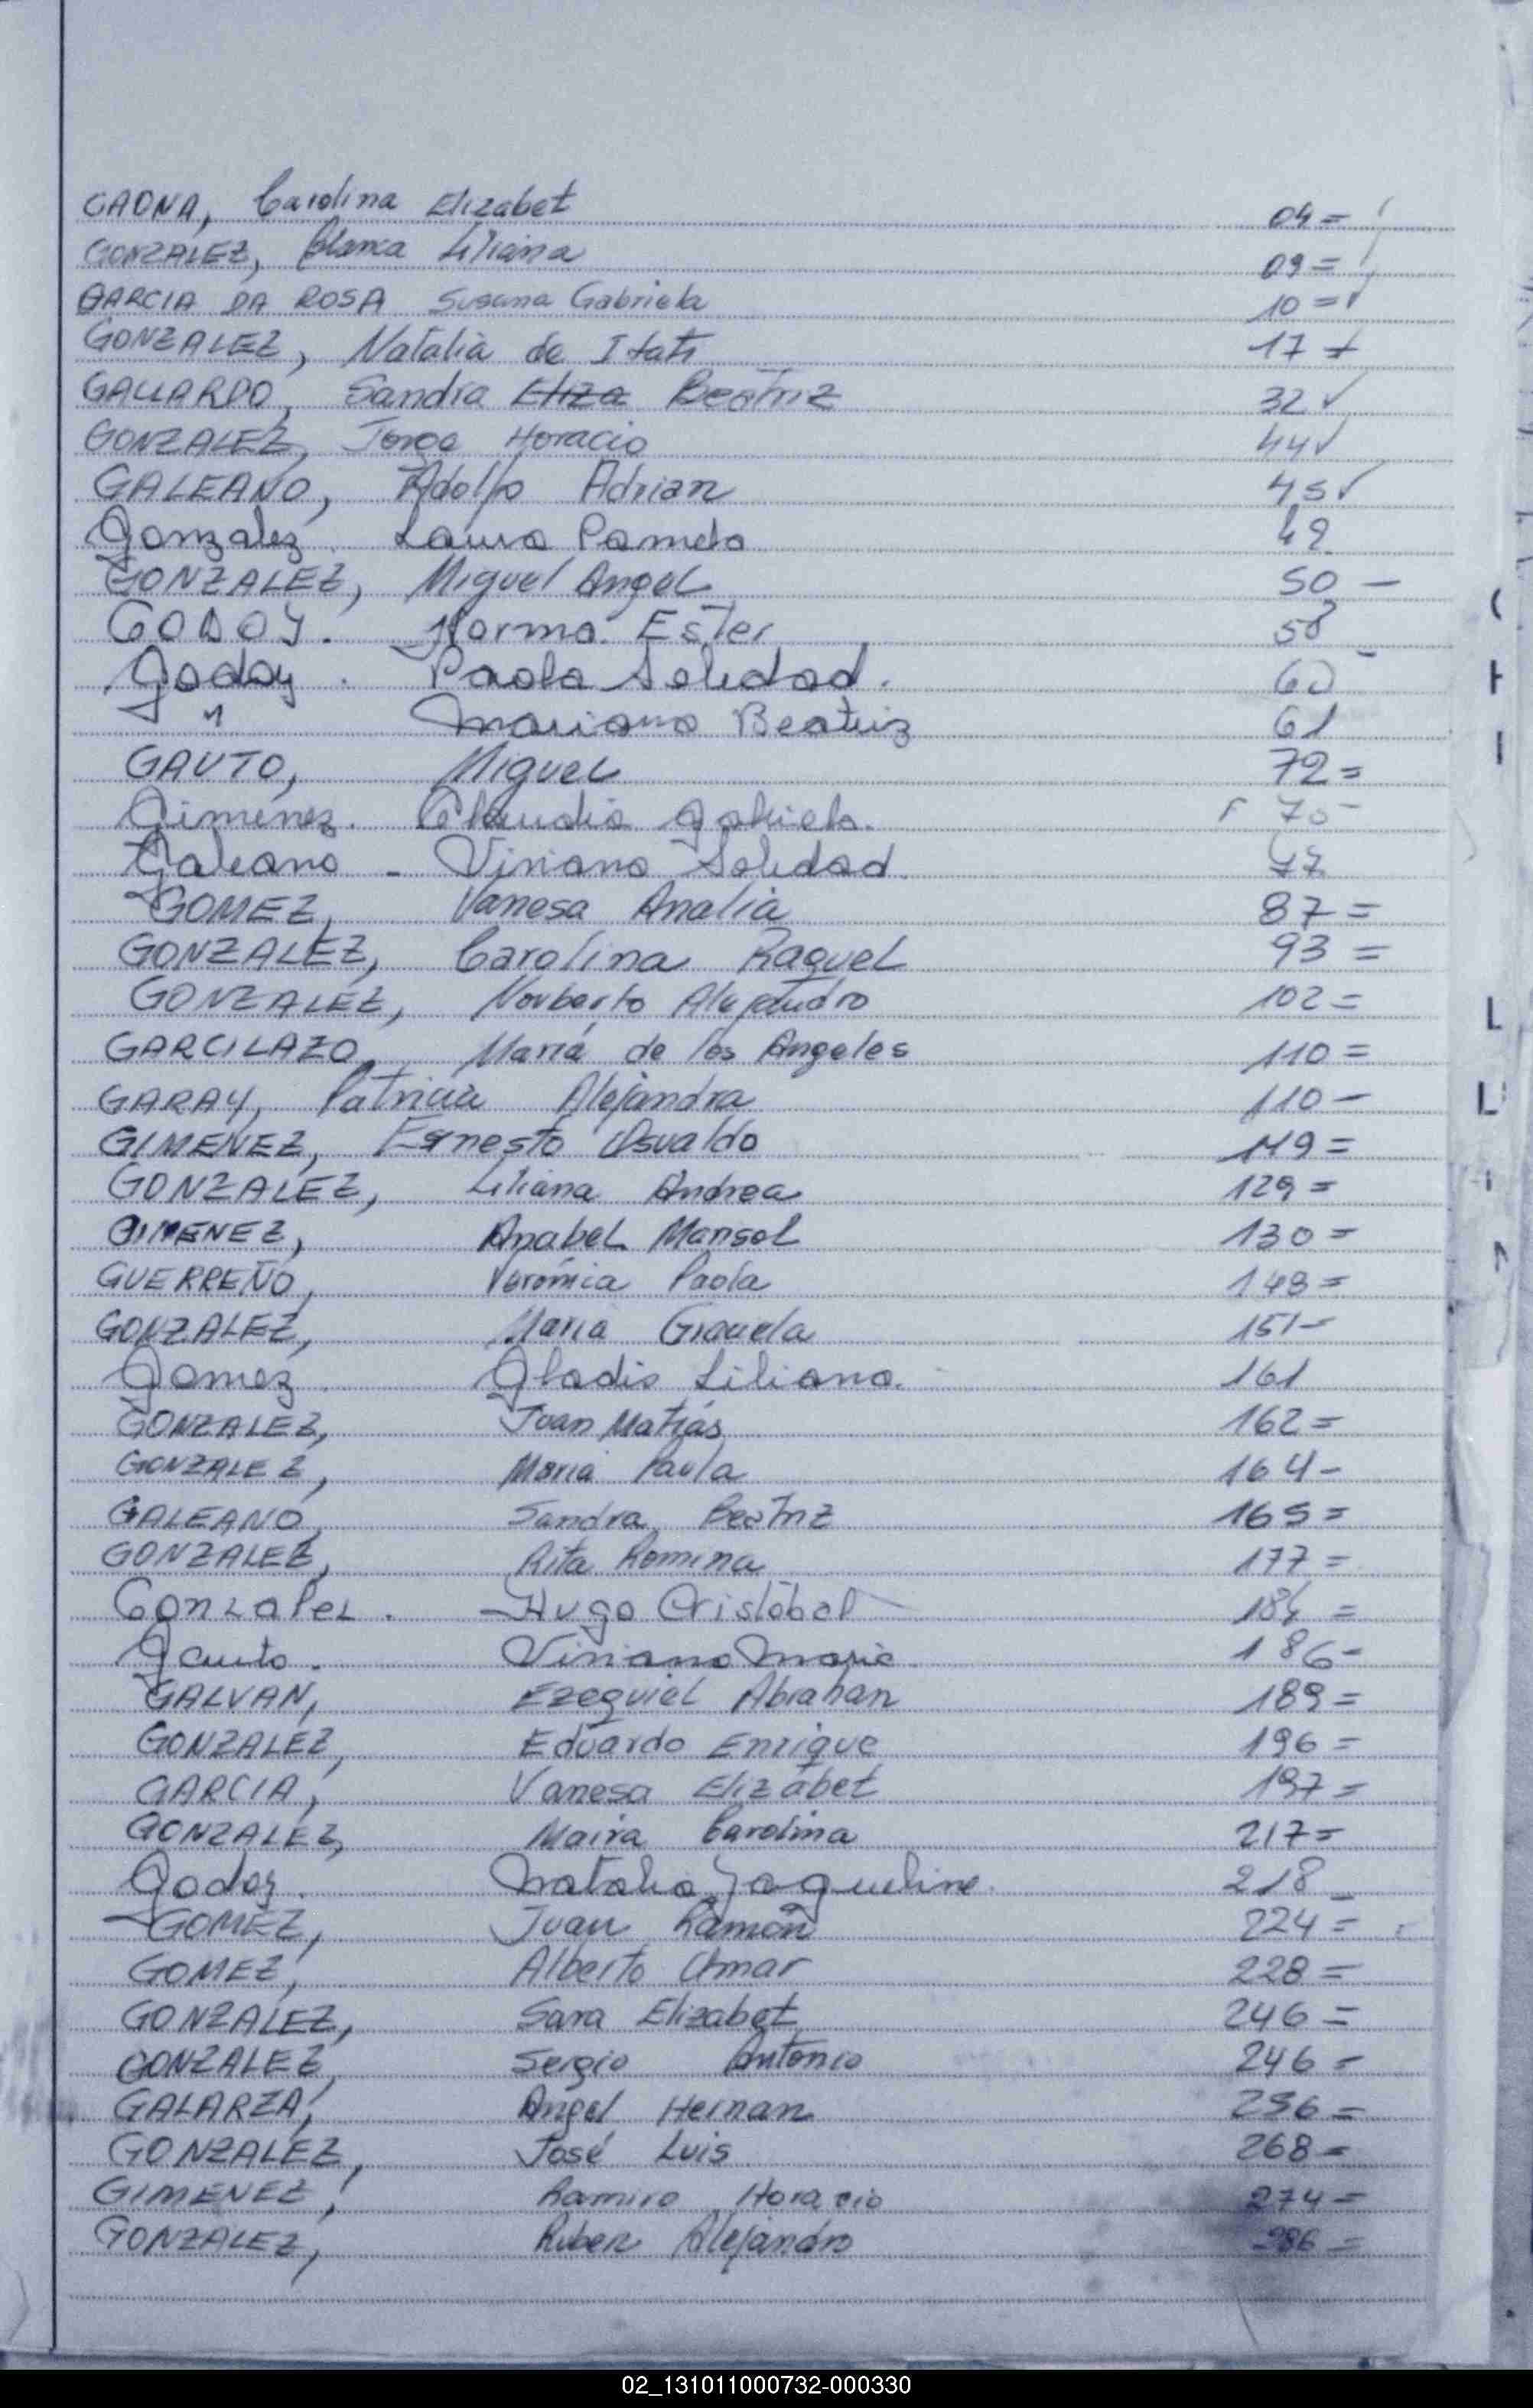 GAONA, Carolina Elizabet 04=
GONZALEZ, Blanca Liliana 09=
GARCIA DA ROSA Susana Gabriela 10=✓
GONZALEZ, Natalia de Itati 17
GALLARDO, Sandra Eliza Beatriz 32✓
GONZALEZ, Jorge Horacio 44✓
GALEANO, Adolfo Adrian 45✓
Gonzalez Laura Pamela 49
GONZALEZ, Miguel Angel 50-
GODOY. Norma Ester 58
Godoy. Paola Soledad. 60-
" Mariana Beatriz 61
GAUTO, Miguel 72=
Gimenez. Claudia Gabriela. 75-
Galeano - Viviana Soledad. 77
GOMEZ, Vanesa Analia 87=
GONZALEZ, Carolina Raquel 93=
GONZALEZ, Norberto Alejandro 102=
GARCILAZO, Maria de los Angeles 110=
GARAY, Patricia Alejandra 110-
GIMENEZ, Ernesto Osvaldo 119=
GONZALEZ, Liliana Andrea 129=
GIMENEZ, Anabel Marisol 130=
GUERREÑO, Veronica Paola 148=
GONZALEZ, Maria Graciela 151-
Gomez Gladis Liliana. 161
GONZALEZ, Juan Matias 162=
GONZALEZ, Maria Paula 164-
GALEANO, Sandra Beatriz 165=
GONZALEZ, Rita Romina 177=
Gonzalez. Hugo Cristóbal 184=
Gauto. Viviana Maria 186-
GALVAN, Ezequiel Abrahan 189=
GONZALEZ, Eduardo Enrique 196=
GARCIA, Vanesa Elizabet 197=
GONZALEZ, Maira Carolina 217=
Godoy. Natalia Jaqueline. 218-
GOMEZ, Juan Ramon 224=
GOMEZ, Alberto Omar 228=
GONZALEZ, Sara Elizabet 246=
GONZALEZ, Sergio Antonio 246=
GALARZA, Angel Hernan 256=
GONZALEZ, José Luis 268=
GIMENEZ, Ramiro Horacio 274=
GONZALEZ, Ruben Alejandro 286=
02_131011000732-000330